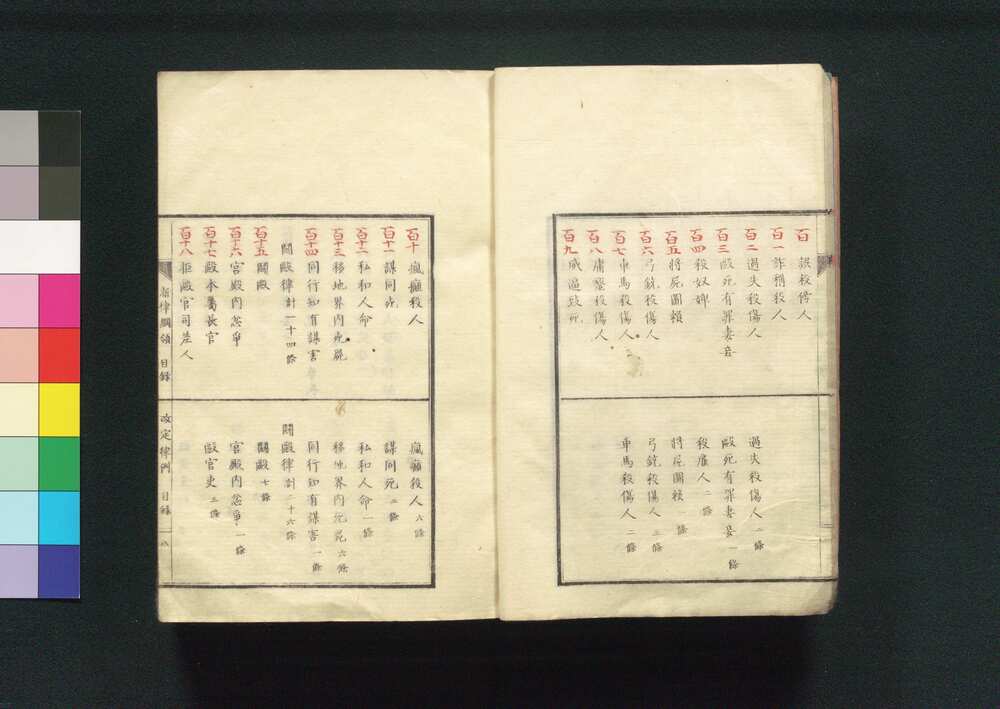 百 誤殺傍人
百一 詐稱殺人
百二 過失殺傷人
百三 毆死有罪妻妾
百四 殺奴婢
百五 將屍圖賴
百六 弓銃殺傷人
百七 車馬殺傷人
百八 庸醫殺傷人
百九 威逼致死
過失殺傷人 二條
毆死有罪妻妾 一條
殺雇人 二條
將屍圖賴 條
弓銃殺傷人 三條
車馬殺傷人 二條
百十 瘋癲殺人
百十一 謀同死
百十二 私和人命
百十三 移地界內死屍
百十四 同行知有謀害
鬪毆律計一十四條
百十五 鬪毆
百十六 宮殿內忿爭
百十七 毆本屬長官
百十八 拒毆官司差人
瘋癲殺人 六條
謀同死 二條
私和人命 一條
移地界內死屍 六條
同行知有謀害 一條
鬪毆律計二十六條
鬪毆 七條
宮殿內忿爭 一條
毆官吏 三條
律綱領 目録 改定律例 目録 八